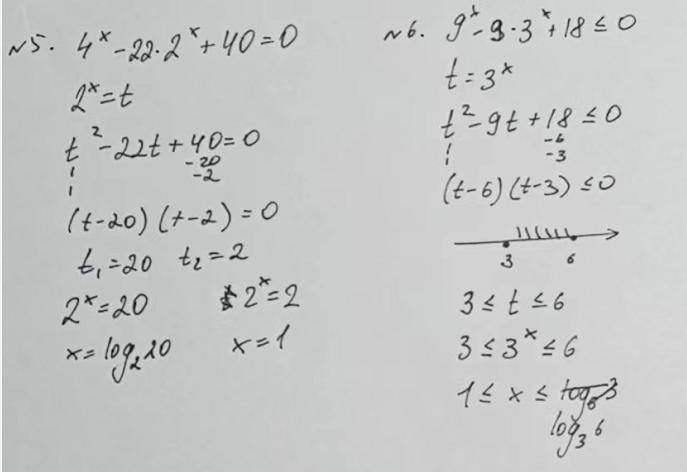 №5. 4^x - 22·2^x + 40 = 0
2^x = t
t^2 - 22t + 40 = 0
-20
-2
(t-20)(t-2) = 0
t₁ = 20 t₂ = 2
2^x = 20 2^x = 2
x = log₂20 x = 1
№6. 9^x - 9·3^x + 18 ≤ 0
t = 3^x
t^2 - 9t + 18 ≤ 0
-6
-3
(t-6)(t-3) ≤ 0
3 6
3 ≤ t ≤ 6
3 ≤ 3^x ≤ 6
1 ≤ x ≤ log₆3
log₃6